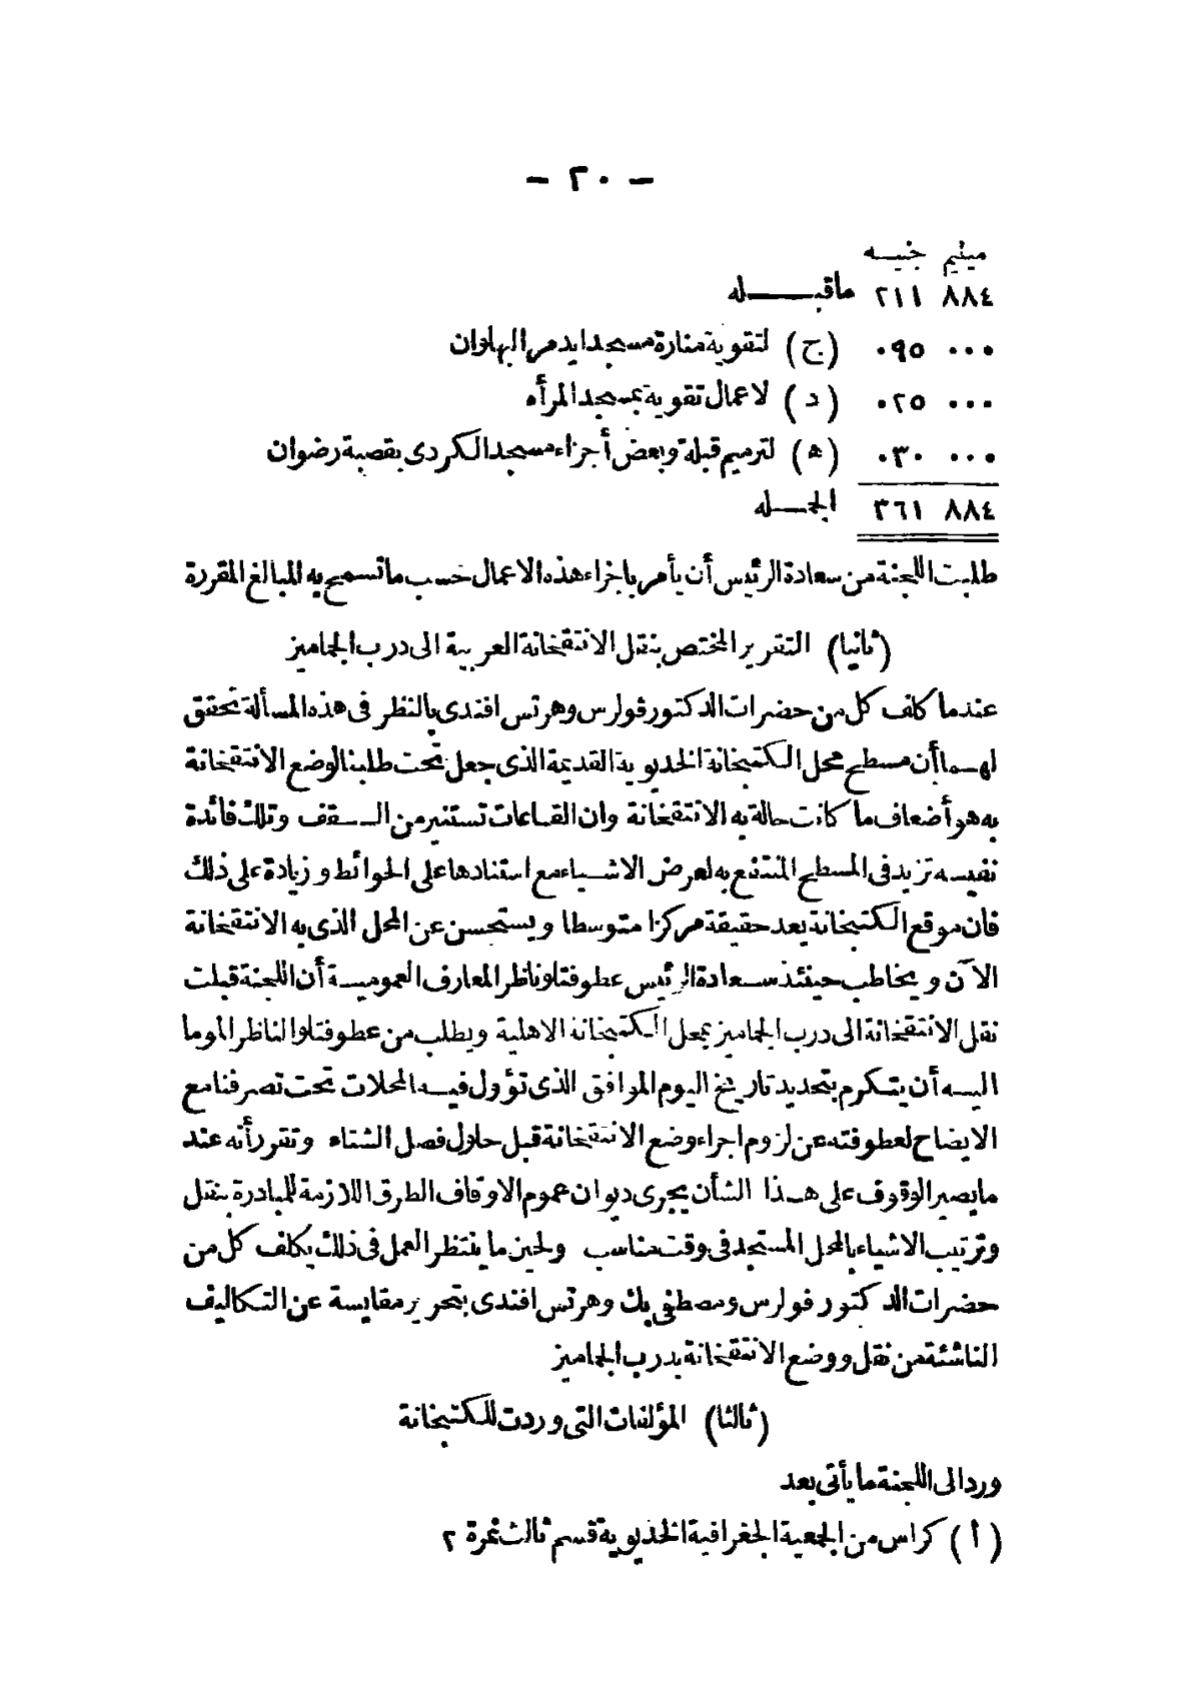 — ٢٠ —
مليم جنيه
٨٨٤ ٢١١ ماقبله
٠٠٠ ٠٩٥ (ج) لتقوية منارة مسجد ايدمر البهلوان
٠٠٠ ٠٢٥ (د) لاعمال تقوية بمسجد المرأه
٠٠٠ ٠٣٠ (ه) لترميم قبلة وبعض أجزاء مسجد الكردى بقصبة رضوان
٨٨٤ ٣٦١ الجمله
طلبت اللجنة من سعادة الرئيس أن يأمر باجراء هذه الاعمال حسب ما تسمح به المبالغ المقررة
(ثانيا) التقرير المختص بنقل الانتقخانة العربية الى درب الجماميز
عندما كلف كل من حضرات الدكتور ڤولرس وهرتس افندى بالنظر فى هذه المسألة تحقق
لهما أن مسطح محل الكتبخانة الخديوية القديمة الذى جعل تحت طلبنا لوضع الانتقخانة
به هو أضعاف ما كانت حالة به الانتقخانة وان القاعات تستنير من السقف وتلك فائدة
نفيسه تزيد فى المسطح المنتفع به لعرض الاشياء مع استنادها على الحوائط وزيادة على ذلك
فان موقع الكتبخانة يعد حقيقة مركزا متوسطا ويستحسن عن المحل الذى به الانتقخانة
الآن ويخاطب حينئذ سعادة الرئيس عطوفتلو ناظر المعارف العمومية أن اللجنة قبلت
نقل الانتقخانة الى درب الجماميز بمحل الكتبخانة الاهلية ويطلب من عطوفتلو الناظر الموما
اليه أن يتكرم بتحديد تاريخ اليوم الموافق الذى تؤول فيه المحلات تحت تصرفنا مع
الايضاح لعطوفته عن لزوم اجراء وضع الانتقخانة قبل حلول فصل الشتاء وتقرر أنه عند
ما يصير الوقوف على هذا الشأن يجرى ديوان عموم الاوقاف الطرق اللازمة للمبادرة بنقل
وترتيب الاشياء بالمحل المستجد فى وقت مناسب ولحين ما ينتظر العمل فى ذلك يكلف كل من
حضرات الدكتور فولرس ومصطفى بك وهرتس افندى بتحرير مقايسة عن التكاليف
الناشئة من نقل ووضع الانتقخانة بدرب الجماميز
(ثالثا) المؤلفات التى وردت للكتبخانة
ورد الى اللجنة ما يأتى بعد
(أ) كراس من الجمعية الجغرافية الخديوية قسم ثالث نمرة ٢